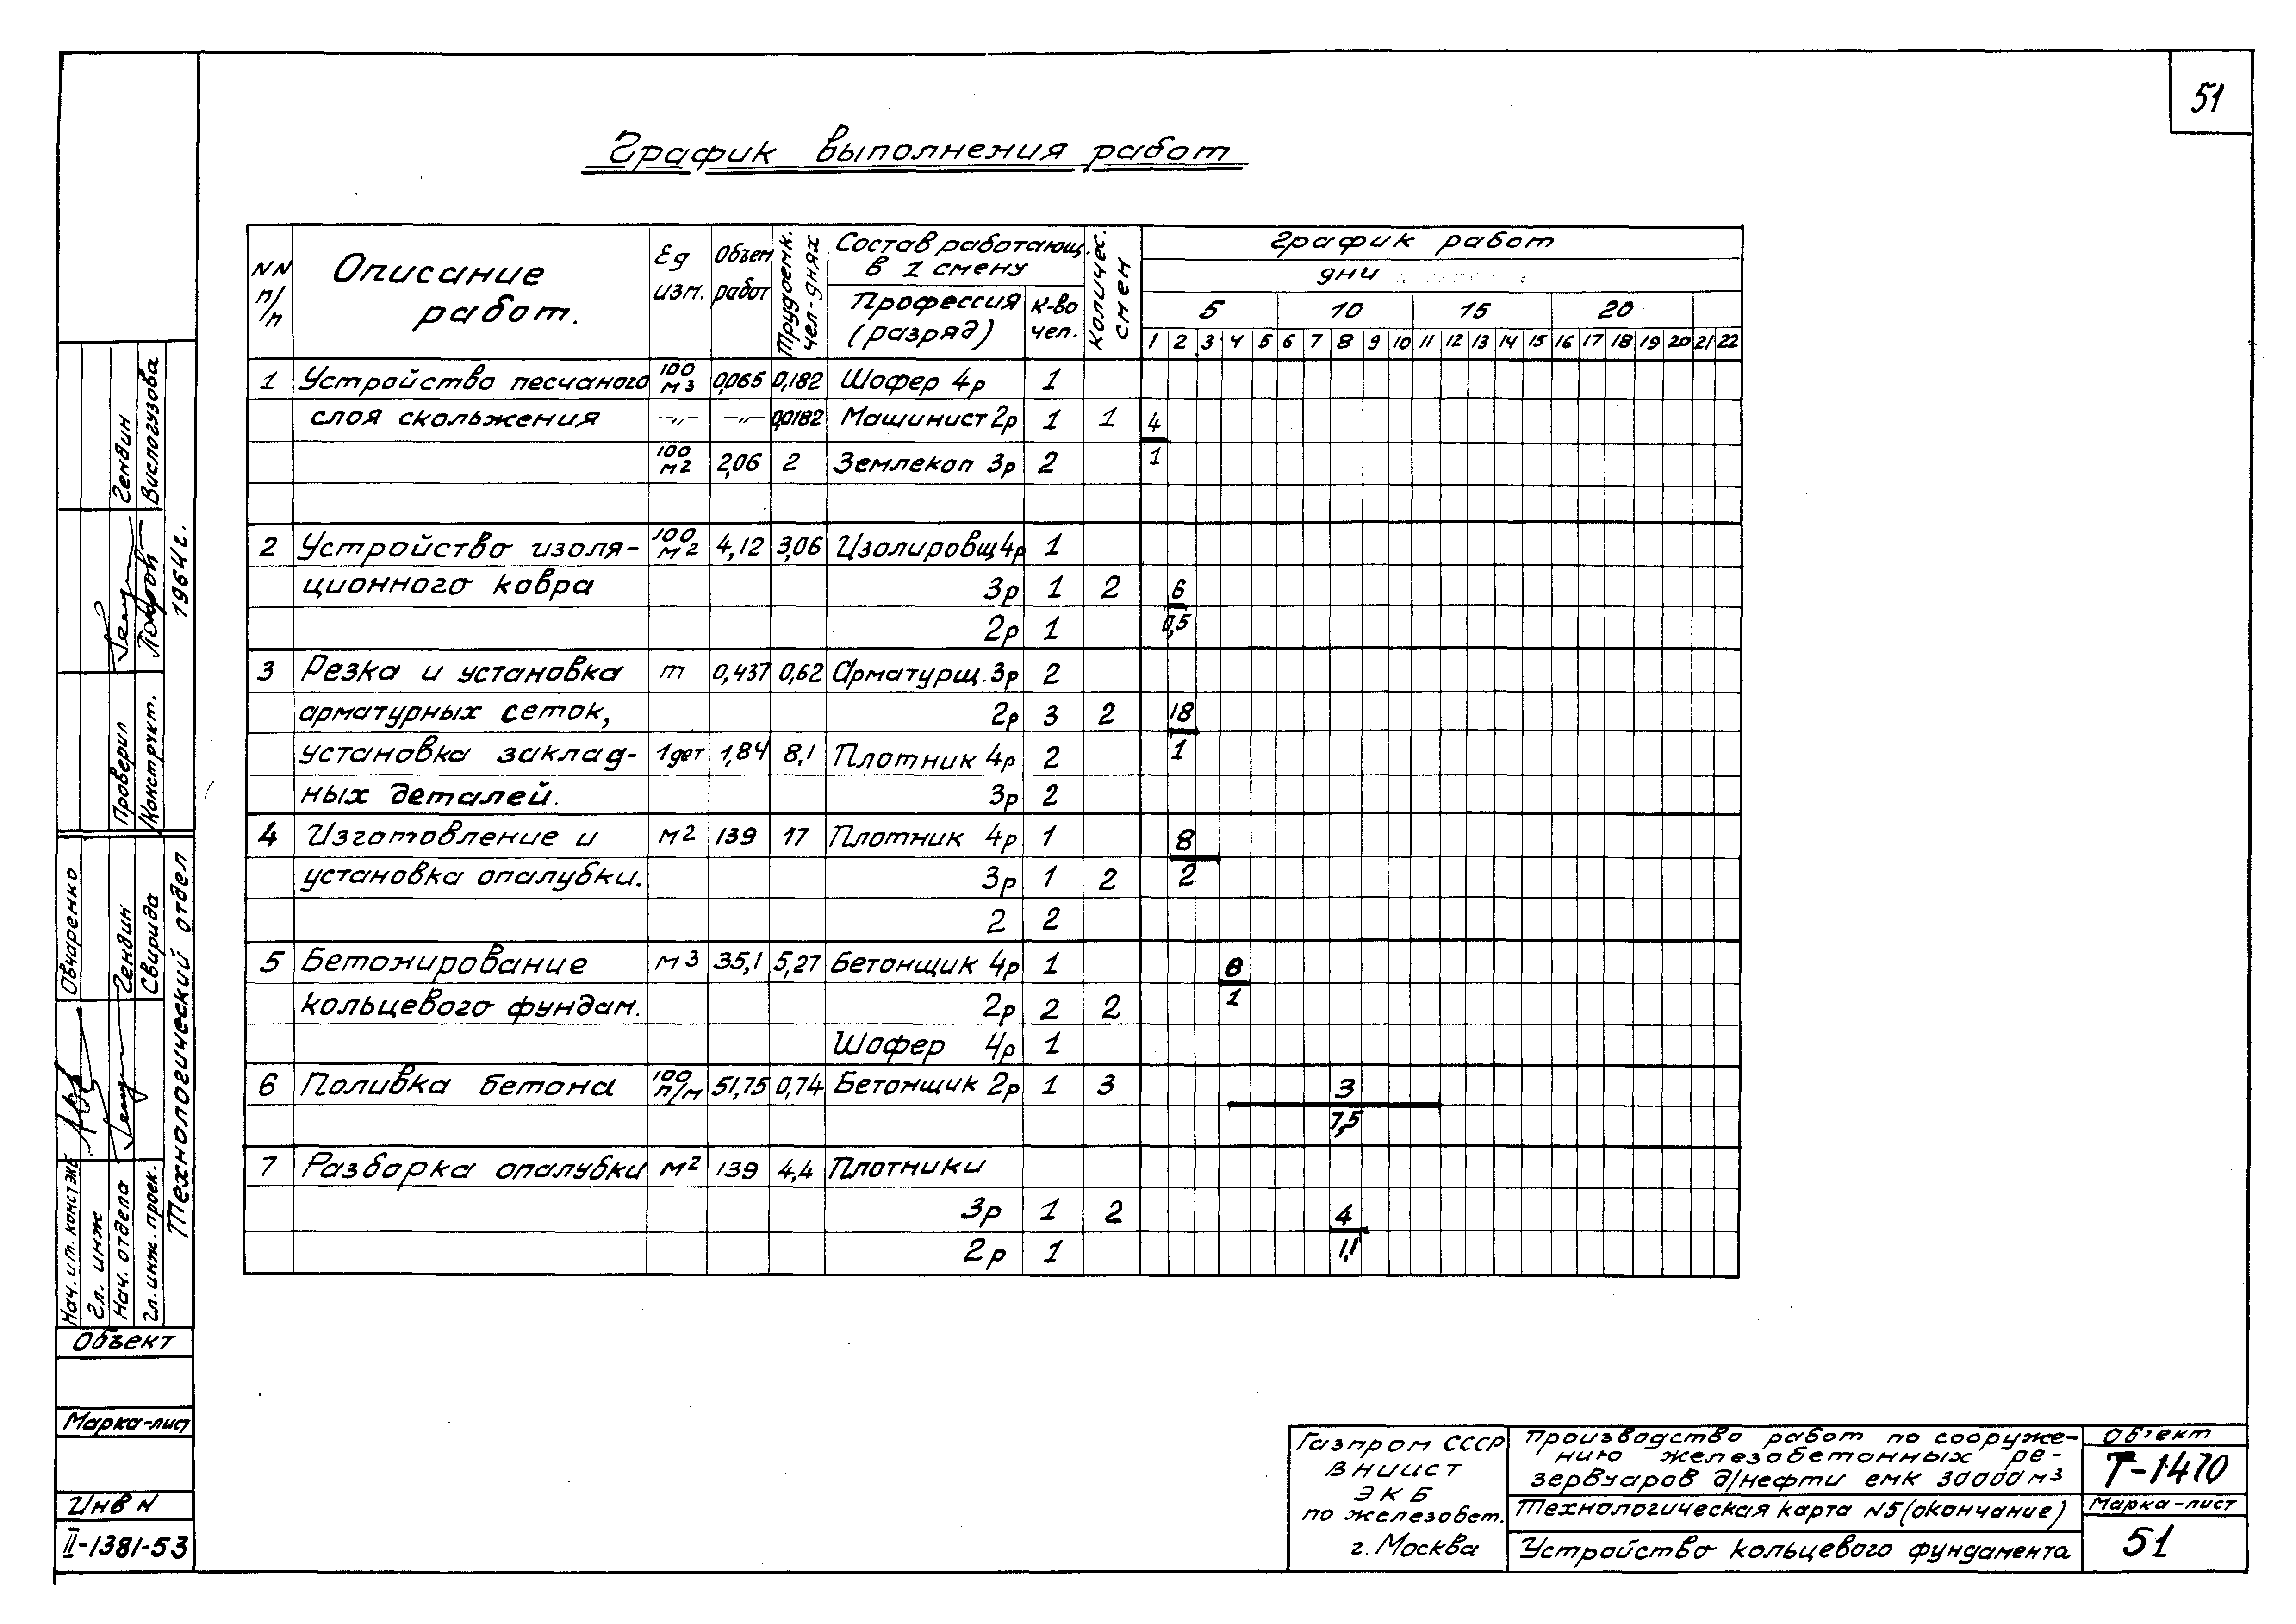 51
График выполнения работ
NN п/п
Описание работ.
Ед изм.
Объем работ
Трудоемк. чел-днях
Состав работающ. в 1 смену
Профессия (разряд)
к-во чел.
Количес. смен
График работ
дни
5 10 15 20
1 2 3 4 5 6 7 8 9 10 11 12 13 14 15 16 17 18 19 20 21 22
1 Устройство песчаного 100 м3 0,065 0,182 Шофер 4р 1
слоя скольжения —„— —„— 0,0182 Машинист 2р 1 1 4
100 м2 2,06 2 Землекоп 3р 2 1
2 Устройство изоля- 100 м2 4,12 3,06 Изолировщ 4р 1
ционного ковра 3р 1 2 6
2р 1 0,5
3 Резка и установка т 0,437 0,62 Арматурщ. 3р 2
арматурных сеток, 2р 3 2 18
установка заклад- 1дет 1,84 8,1 Плотник 4р 2 1
ных деталей. 3р 2
4 Изготовление и м2 139 17 Плотник 4р 1 8
установка опалубки. 3р 1 2 2
2 2
5 Бетонирование м3 35,1 5,27 Бетонщик 4р 1 8
кольцевого фундам. 2р 2 2 1
Шофер 4р 1
6 Поливка бетона 100 п/м 51,75 0,74 Бетонщик 2р 1 3 3
7,5
7 Разборка опалубки м2 139 4,4 Плотники
3р 1 2 4
2р 1 1,1
Генвин
Вислогузова
1964г.
Проверил
Конструкт.
Овчаренко
Генвин
Свирида
Технологический отдел
Нач. и т. констЭКБ
Гл. инж
Нач. отдела
Гл. инж. проек.
Объект
Марка-лист
Инв N
II-1381-53
Газпром СССР
ВНИИСТ
ЭКБ
по железобет.
г. Москва
Производство работ по сооруже-
нию железобетонных ре-
зервуаров д/нефти емк 30000м3
Технологическая карта N5 (окончание)
Устройство кольцевого фундамента
Объект
Т-1470
Марка-лист
51